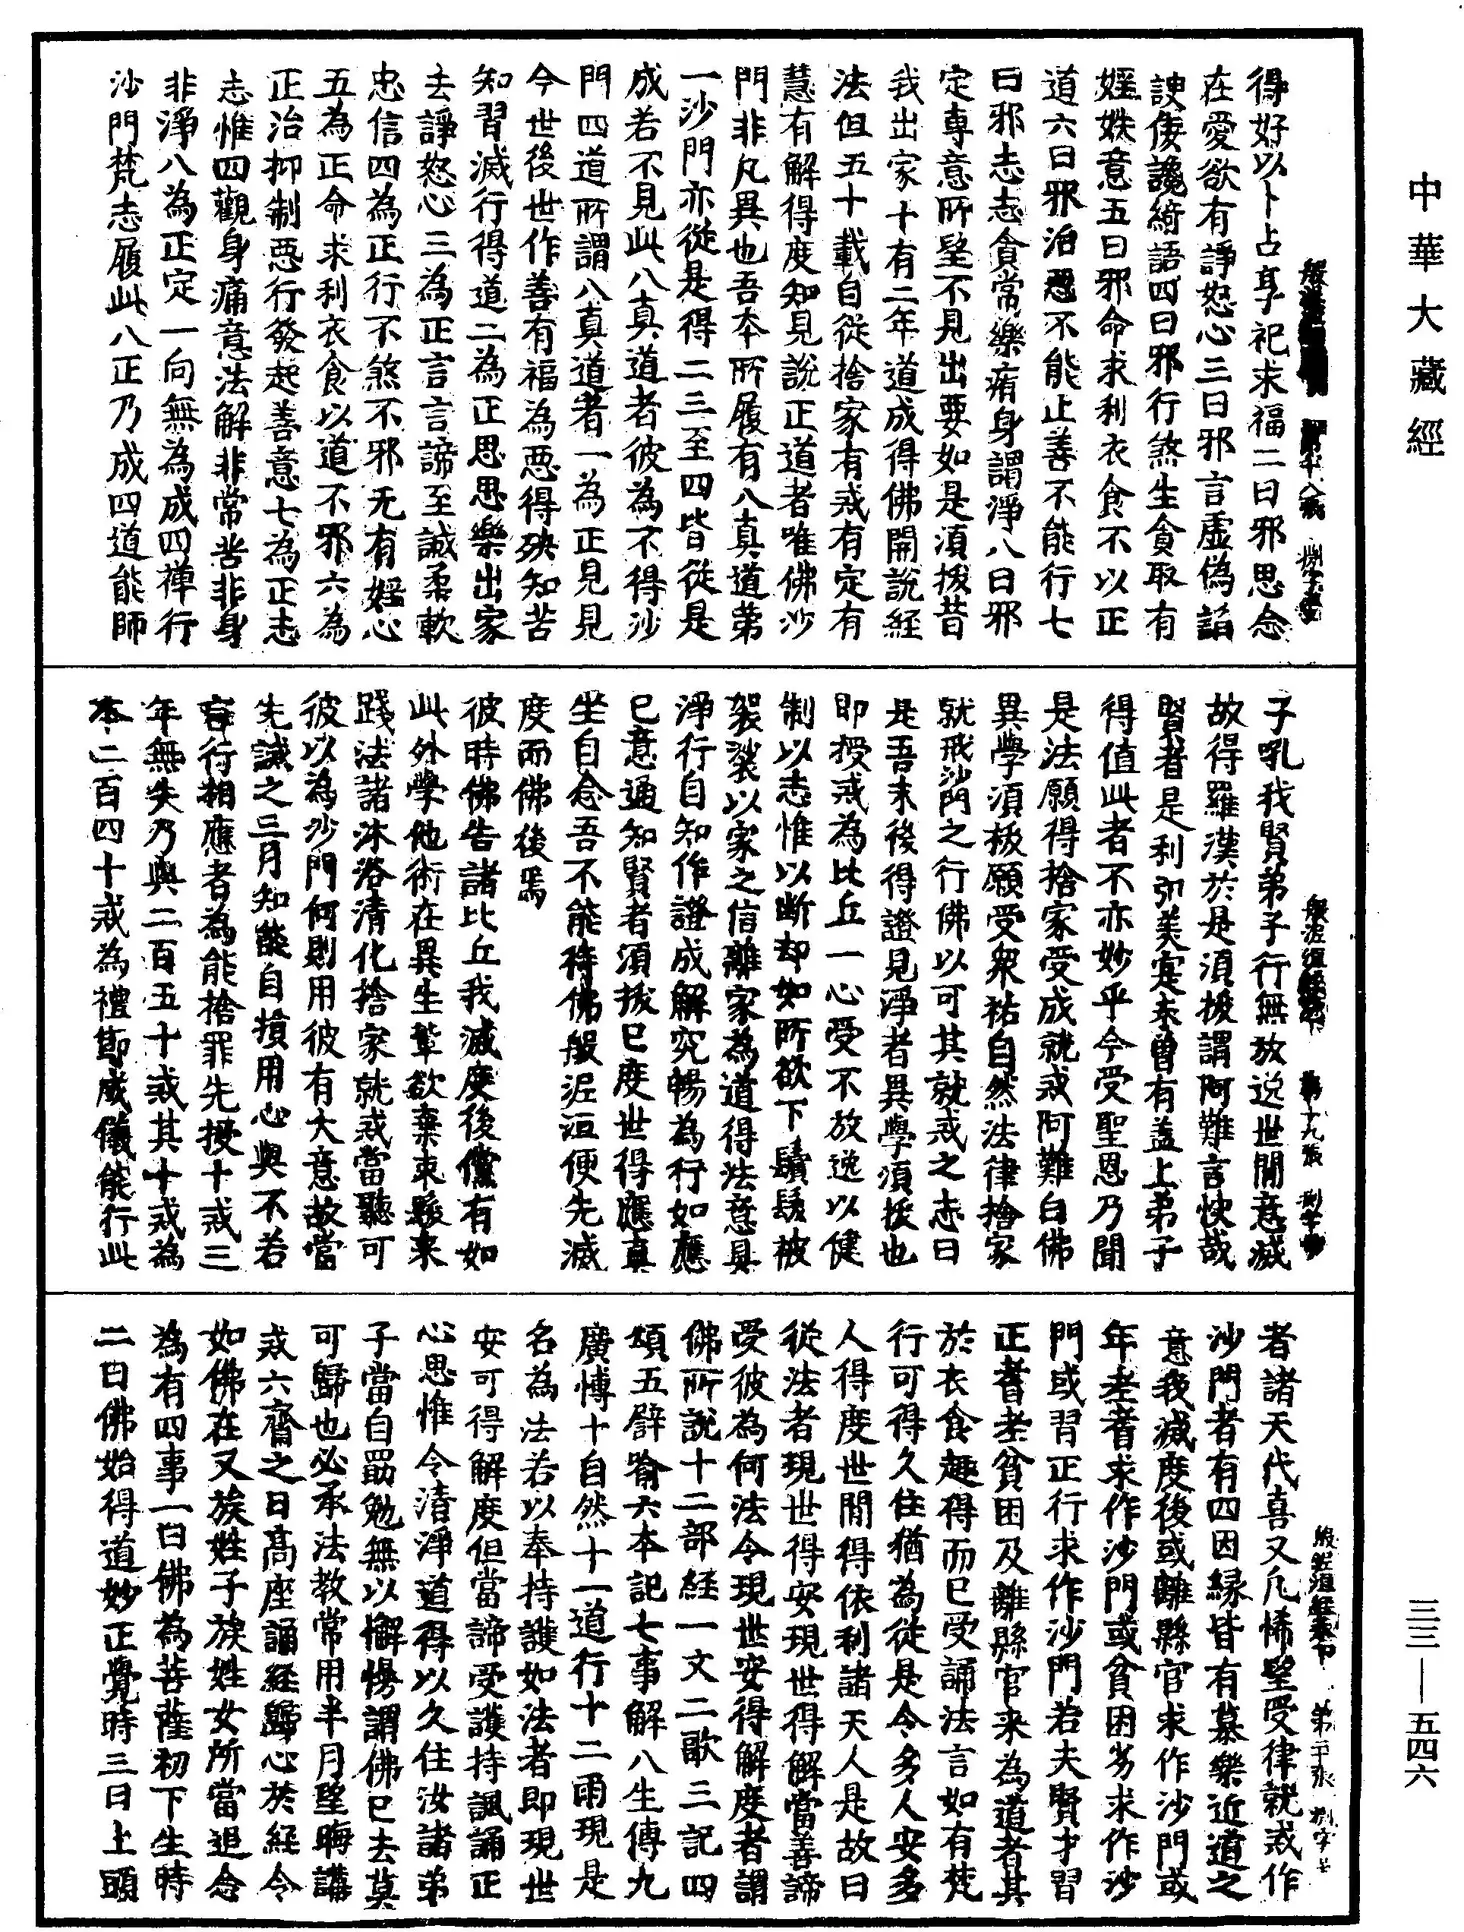 中華大藏經
三三—五四六
得好以卜占享祀求福二曰邪思念
在愛欲有諍怒心三曰邪言虛偽諂
諛佞讒綺語四曰邪行煞生貪取有
婬妷意五曰邪命求利衣食不以正
道六曰邪治惡不能止善不能行七
曰邪志志貪常樂痛身謂淨八曰邪
定專意所望不見出要如是須拔昔
我出家十有二年道成得佛開說經
法但五十載自從捨家有戒有定有
慧有解得度知見說正道者唯佛沙
門非凡異也吾本所履有八真道弟
一沙門亦從是得二三至四皆從是
成若不見此八真道者彼為不得沙
門四道所謂八真道者一為正見見
今世後世作善有福為惡得殃知苦
知習滅行得道二為正思思樂出家
去諍怒心三為正言言諦至誠柔軟
忠信四為正行不煞不邪无有婬心
五為正命求利衣食以道不邪六為
正治抑制惡行發起善意七為正志
志惟四觀身痛意法解非常苦非身
非淨八為正定一向無為成四禪行
沙門梵志履此八正乃成四道能師
般泥洹經卷下 第十九張
子吼我賢弟子行無放逸世間意滅
故得羅漢於是須拔謂阿難言快哉
賢者是利引美寔未曾有蓋上弟子
得值此者不亦妙乎今受聖恩乃聞
是法願得捨家受成就戒阿難白佛
異學須拔願受眾祐自然法律捨家
就戒沙門之行佛以可其就戒之志曰
是吾末後得證見淨者異學須拔也
即授戒為比丘一心受不放逸以健
制以志惟以斷却如所欲下鬚髮被
袈裟以家之信離家為道得法意具
淨行自知作證成解究暢為行如應
已意通知賢者須拔已度世得應真
坐自念吾不能待佛般泥洹便先滅
度而佛後焉
彼時佛告諸比丘我滅度後儻有如
此外學他術在異生輩欲棄束髮来
踐法諸沐浴清化捨家就戒當聽可
彼以為沙門何則用彼有大意故當
先試之三月知能自損用心與不若
言行相應者為能捨罪先授十戒三
年無失乃與二百五十戒其十戒為
本二百四十戒為禮節威儀能行此
般泥洹經卷下 第二十張
者諸天代喜又凡悕望受律就戒作
沙門者有四因緣皆有慕樂近道之
意我滅度後或離縣官求作沙門或
年老耆求作沙門或貧困劣求作沙
門或習正行求作沙門若夫賢才習
正耆老貧困及離縣官来為道者其
於衣食趣得而已受誦法言如有梵
行可得久住猶為從是令多人安多
人得度世間得依利諸天人是故曰
從法者現世得安現世得解當善諦
受彼為何法令現世安得解度者謂
佛所說十二部經一文二歌三記四
頌五譬喻六本記七事解八生傳九
廣博十自然十一道行十二兩現是
名為法若以奉持護如法者即現世
安可得解度但當諦受護持諷誦正
心思惟令清淨道得以久住汝諸弟
子當自勖勉無以懈慢謂佛已去莫
可歸也必承法教常用半月望晦講
戒六齋之日高座誦經歸心於經令
如佛在又族姓子族姓女所當追念
為有四事一曰佛為菩薩初下生時
二曰佛始得道妙正覺時三曰上頭